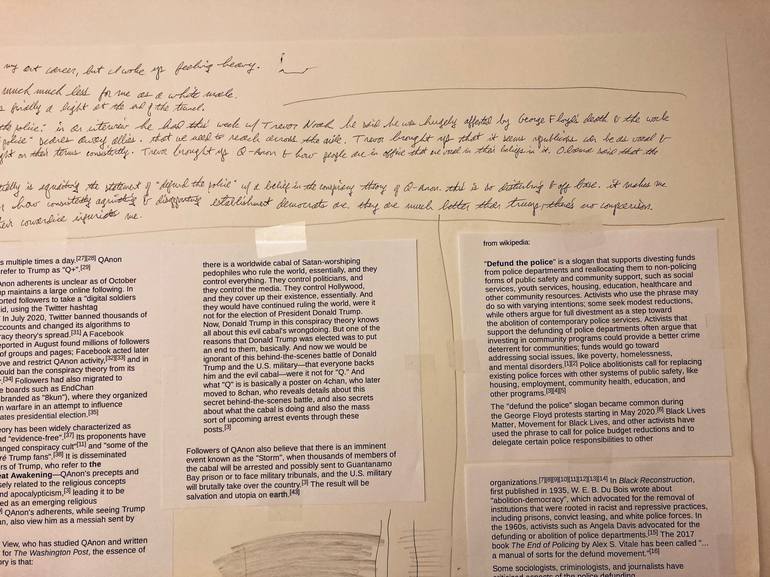 my art career, but I woke up feeling heavy.
much much less for me as a white male.
finally a light at the end of the tunnel.
the police". in an interview he had this week w/ Trevor Noah he said he was hugely affected by George Floyd's death & the work
police" scares away allies. that we need to reach across the aisle. Trevor brought up that it seems republicans can be as vocal &
on their terms consistently. Trevor brought up Q-Anon & how people are in office that are vocal in their beliefs in it. Obama said that the
is equating the statement of "defund the police" w/ a belief in the conspiracy theory of Q-Anon. this is so disturbing & off base. it makes me
how consistently & disappointing establishment democrats are. they are much better than trump, there's no comparison.
their cowardice infuriates me.
s multiple times a day.[27][28] QAnon
refer to Trump as "Q+".[29]
Anon adherents is unclear as of October
p maintains a large online following. In
orted followers to take a "digital soldiers
id, using the Twitter hashtag
In July 2020, Twitter banned thousands of
ccounts and changed its algorithms to
racy theory's spread.[31] A Facebook
eported in August found millions of followers
of groups and pages; Facebook acted later
ove and restrict QAnon activity,[32][33] and in
ould ban the conspiracy theory from its
.[34] Followers had also migrated to
e boards such as EndChan
branded as "8kun"), where they organized
n warfare in an attempt to influence
ates presidential election.[35]
eory has been widely characterized as
nd "evidence-free".[37] Its proponents have
anged conspiracy cult"[11] and "some of the
re Trump fans".[38] It is disseminated
rs of Trump, who refer to the
eat Awakening—QAnon's precepts and
sely related to the religious concepts
nd apocalypticism,[3] leading it to be
ed as an emerging religious
QAnon's adherents, while seeing Trump
an, also view him as a messiah sent by
View, who has studied QAnon and written
for The Washington Post, the essence of
ory is that:
there is a worldwide cabal of Satan-worshiping
pedophiles who rule the world, essentially, and they
control everything. They control politicians, and
they control the media. They control Hollywood,
and they cover up their existence, essentially. And
they would have continued ruling the world, were it
not for the election of President Donald Trump.
Now, Donald Trump in this conspiracy theory knows
all about this evil cabal's wrongdoing. But one of the
reasons that Donald Trump was elected was to put
an end to them, basically. And now we would be
ignorant of this behind-the-scenes battle of Donald
Trump and the U.S. military—that everyone backs
him and the evil cabal—were it not for "Q." And
what "Q" is is basically a poster on 4chan, who later
moved to 8chan, who reveals details about this
secret behind-the-scenes battle, and also secrets
about what the cabal is doing and also the mass
sort of upcoming arrest events through these
posts.[3]
Followers of QAnon also believe that there is an imminent
event known as the "Storm", when thousands of members of
the cabal will be arrested and possibly sent to Guantanamo
Bay prison or to face military tribunals, and the U.S. military
will brutally take over the country.[3] The result will be
salvation and utopia on earth.[43]
from wikipedia:
"Defund the police" is a slogan that supports divesting funds
from police departments and reallocating them to non-policing
forms of public safety and community support, such as social
services, youth services, housing, education, healthcare and
other community resources. Activists who use the phrase may
do so with varying intentions; some seek modest reductions,
while others argue for full divestment as a step toward
the abolition of contemporary police services. Activists that
support the defunding of police departments often argue that
investing in community programs could provide a better crime
deterrent for communities; funds would go toward
addressing social issues, like poverty, homelessness,
and mental disorders.[1][2] Police abolitionists call for replacing
existing police forces with other systems of public safety, like
housing, employment, community health, education, and
other programs.[3][4][5]
The "defund the police" slogan became common during
the George Floyd protests starting in May 2020.[6] Black Lives
Matter, Movement for Black Lives, and other activists have
used the phrase to call for police budget reductions and to
delegate certain police responsibilities to other
organizations.[7][8][9][10][11][12][13][14] In Black Reconstruction,
first published in 1935, W. E. B. Du Bois wrote about
"abolition-democracy", which advocated for the removal of
institutions that were rooted in racist and repressive practices,
including prisons, convict leasing, and white police forces. In
the 1960s, activists such as Angela Davis advocated for the
defunding or abolition of police departments.[15] The 2017
book The End of Policing by Alex S. Vitale has been called "...
a manual of sorts for the defund movement."[16]
Some sociologists, criminologists, and journalists have
criticized aspects of the police defunding